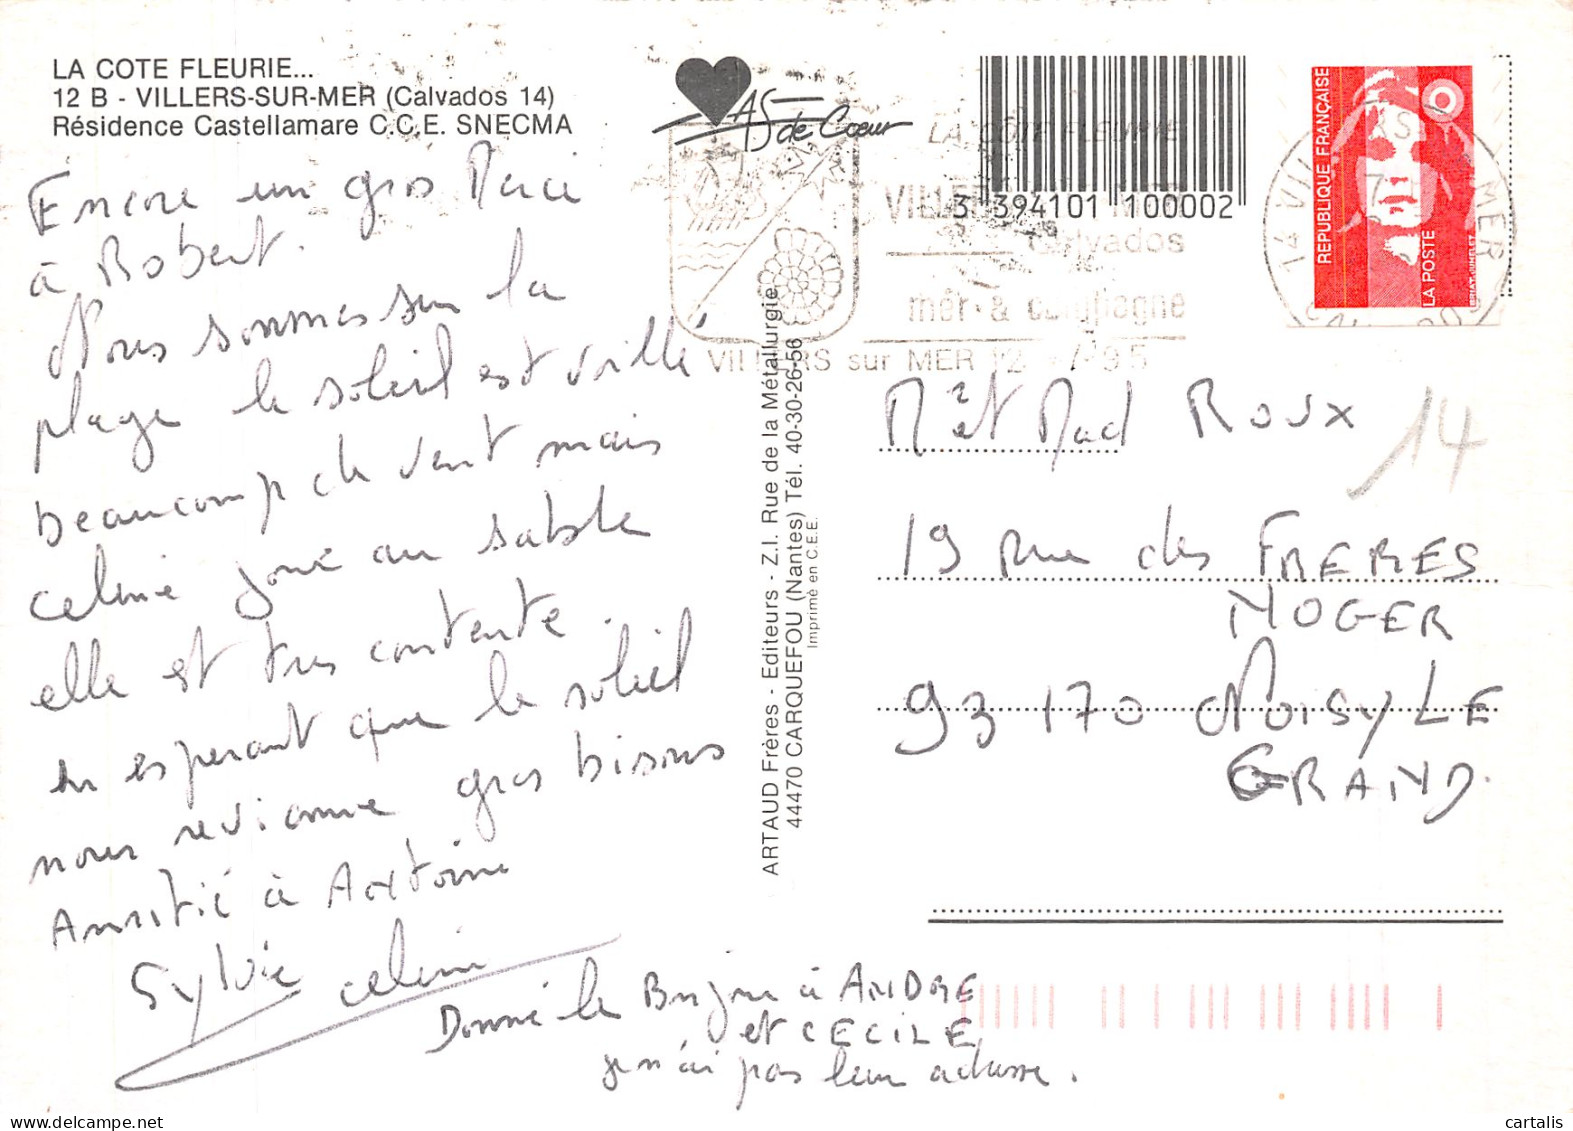 LA COTE FLEURIE...
12 B - VILLERS-SUR-MER (Calvados 14)
Résidence Castellamare C.C.E. SNECMA
Encore un gros Merci
à Robert.
Nous sommes sur la
plage le soleil est voillé
beaucoup de vent mais
celine joue au sable
elle est tres contente.
en esperant que le soleil
nous revienne gros bisous
Amitié à Antoine
Sylvie celine
Donné le Bonjour à ANDRE
et CECILE
je n'ai pas leur adresse.
AS de Coeur
3 394101 100002
LA COTE FLEURIE
VILLERS
Calvados
mer & campagne
VILLERS sur MER 12 - 7 95
ARTAUD Frères - Editeurs - Z.I. Rue de la Métallurgie
44470 CARQUEFOU (Nantes) Tél. 40-30-26-56
Imprimé en C.E.E.
REPUBLIQUE FRANÇAISE
LA POSTE
MER
14
M et Mad Roux
14
19 rue des FRERES
NOGER
93170 NOISY LE
GRAND.
cartalis
delcampe.net